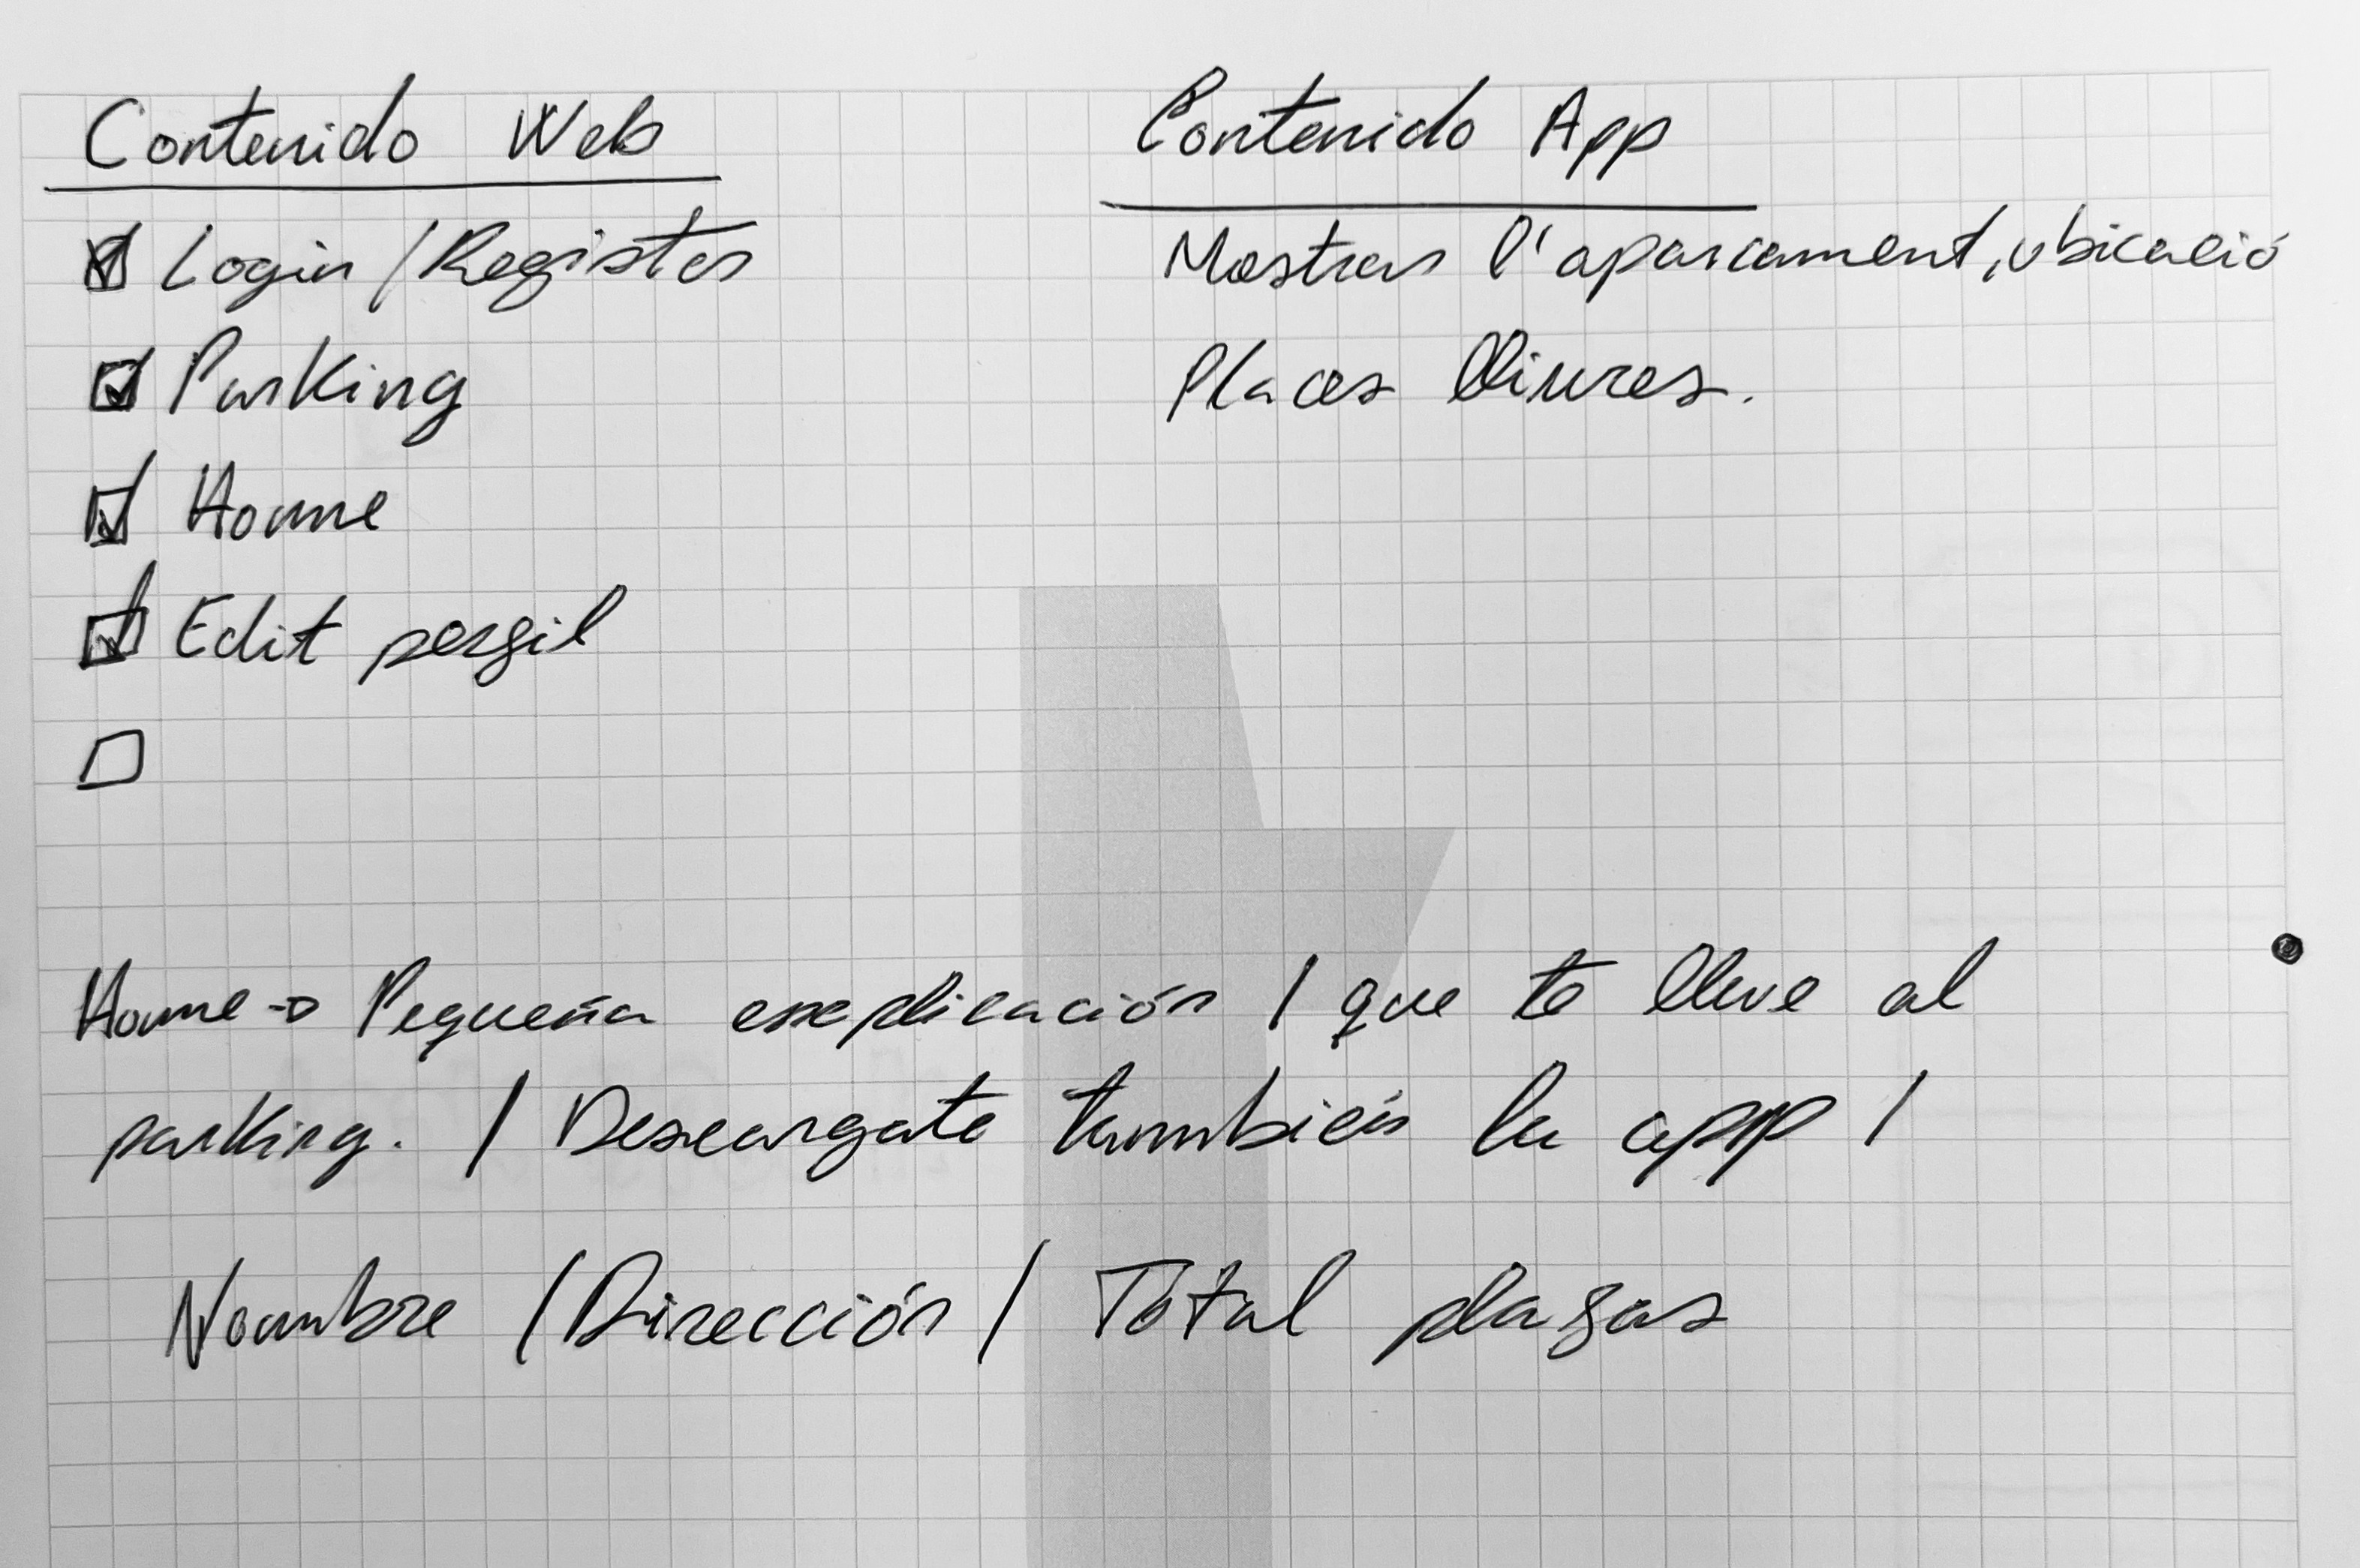 Contenido Web
Login / Register
Parking
Home
Edit perfil
Contenido App
Mostrar l'aparcament, ubicació
Places lliures.
Home → Pequeña explicación / que te lleve al
parking. / Descargate también la app /
Nombre / Dirección / Total plazas